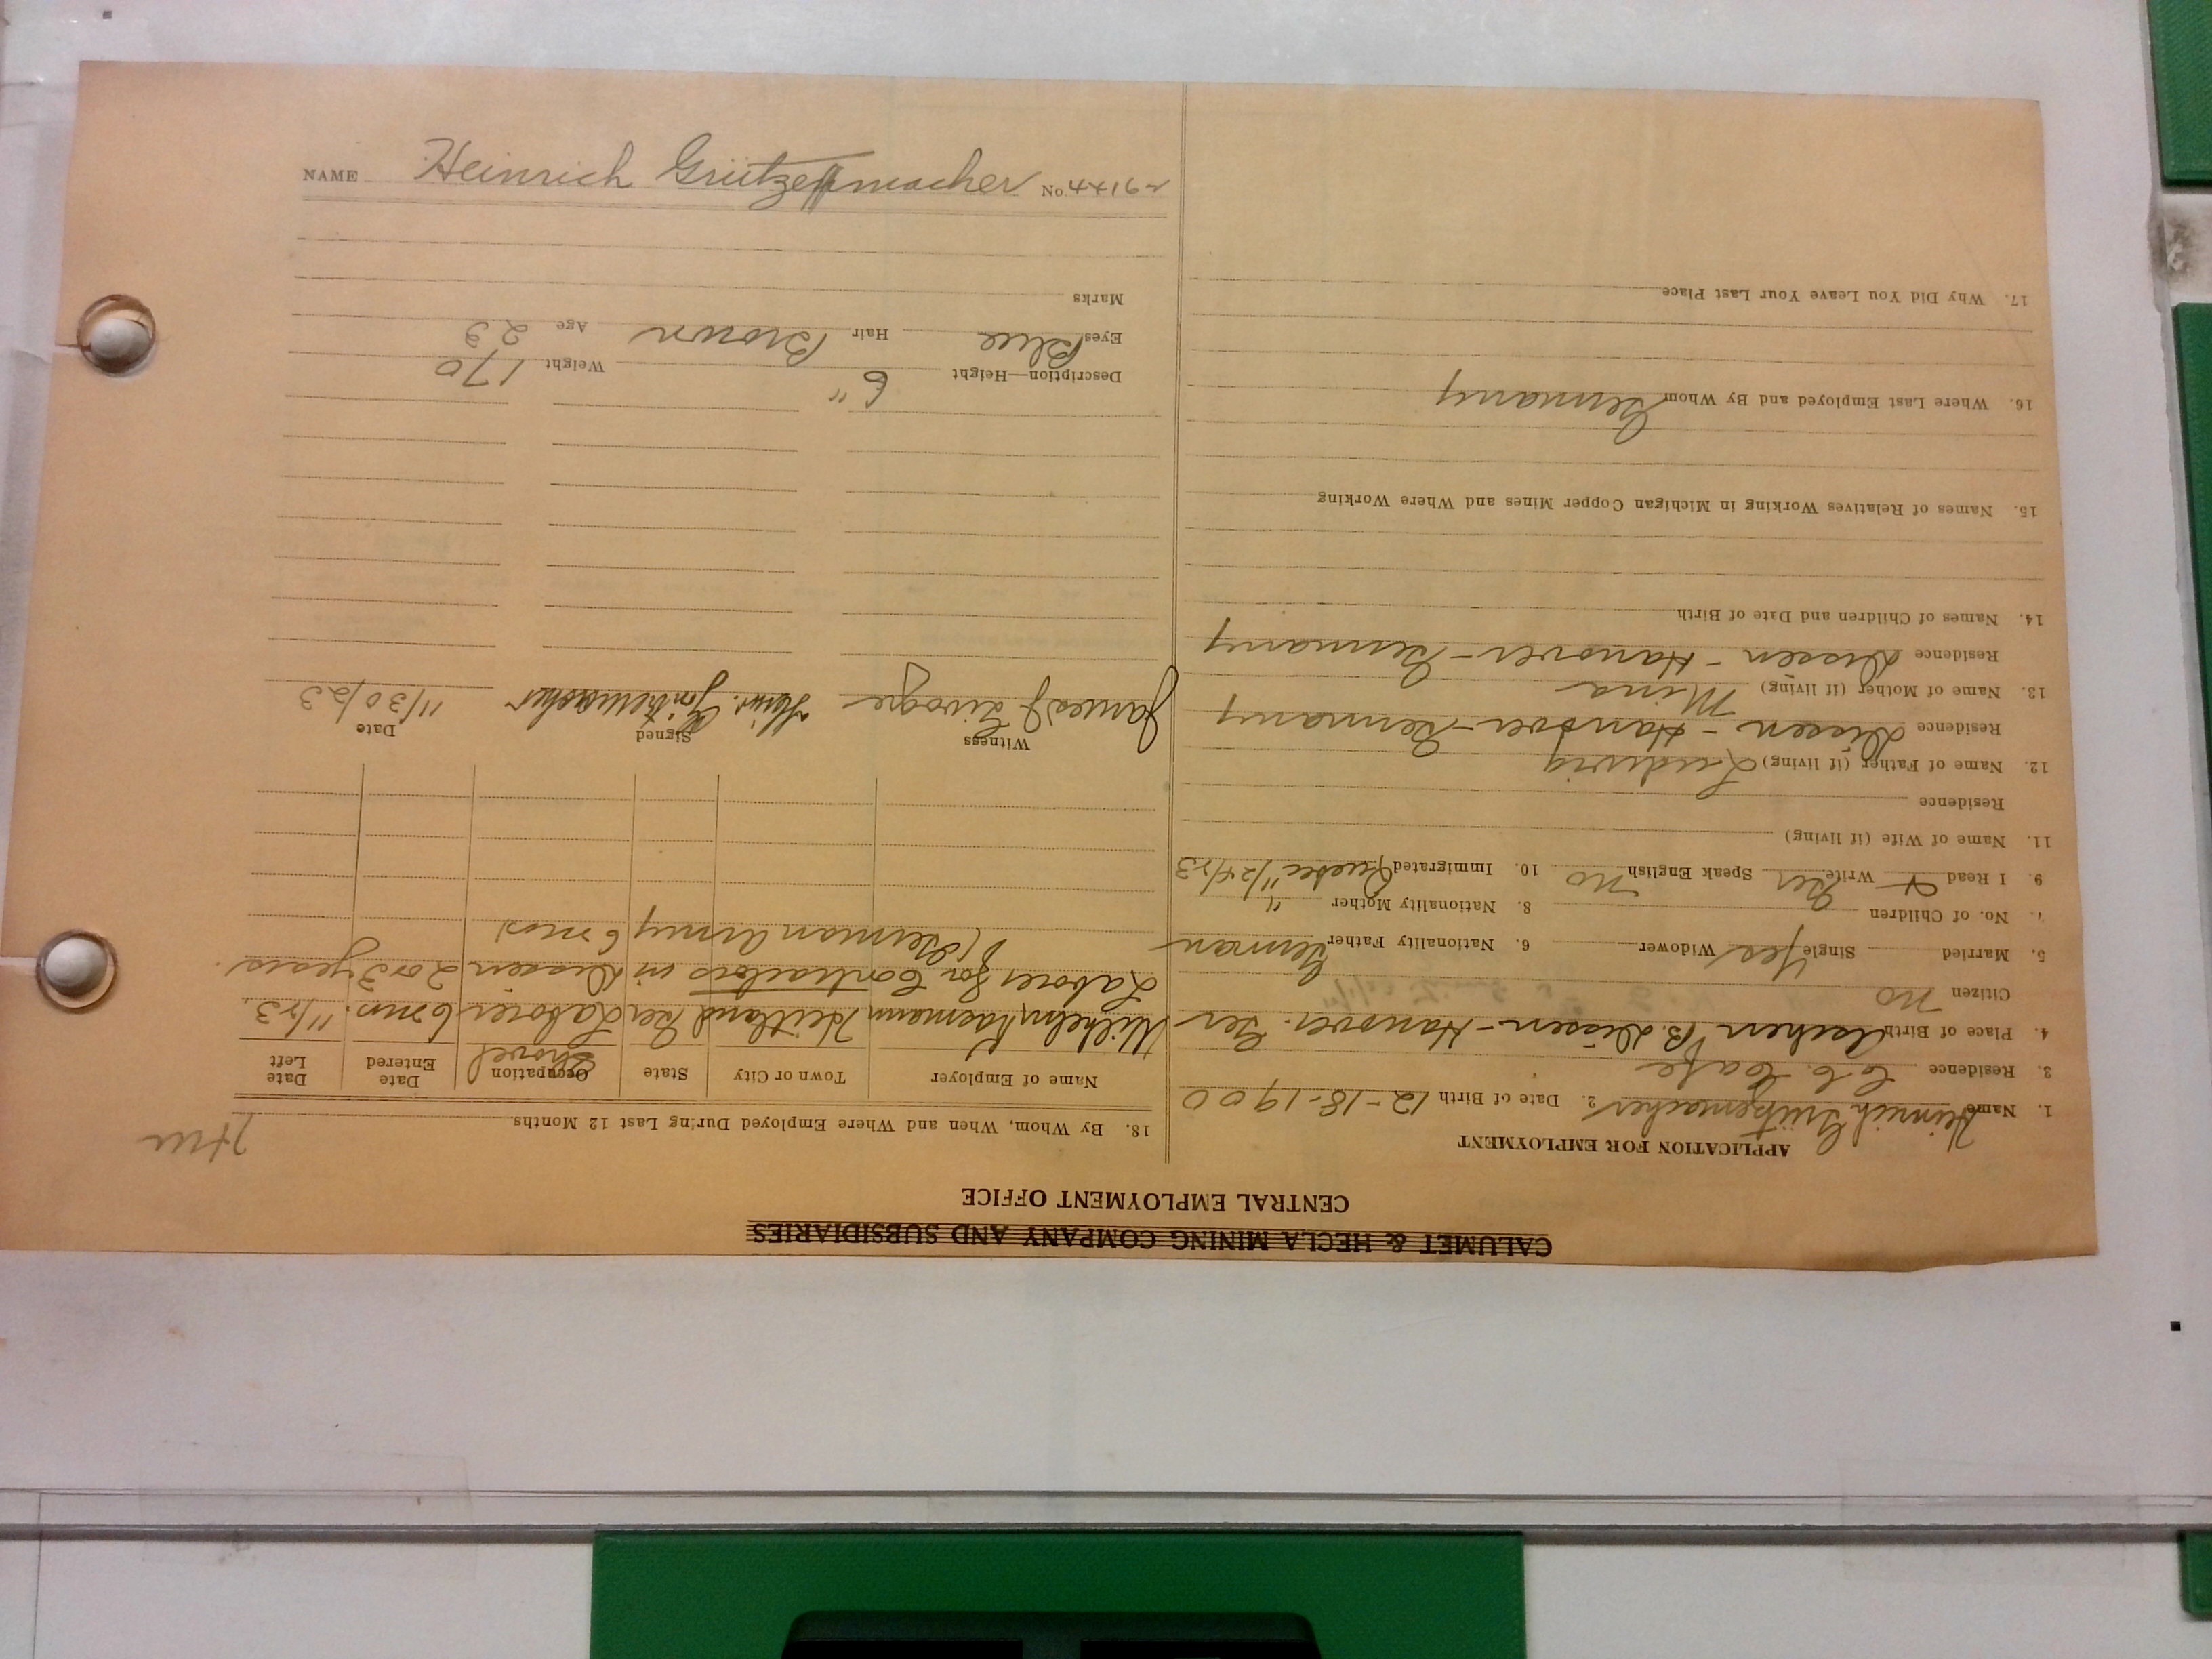 CALUMET & HECLA MINING COMPANY AND SUBSIDIARIES
CENTRAL EMPLOYMENT OFFICE
APPLICATION FOR EMPLOYMENT
1. Name Heinrich Grützemacher 2. Date of Birth 12-18-1900
3. Residence C.C. Cafe
4. Place of Birth Aschen B. Dissen - Hanover. Ger
Citizen no
5. Married Single Yes Widower 6. Nationality Father German
7. No. of Children 8. Nationality Mother "
9. I Read + Write Ger Speak English no 10. Immigrated 11/24/23
11. Name of Wife (if living)
Residence
12. Name of Father (if living) Ludwig
Residence Dissen - Hanover - Germany
13. Name of Mother (if living) Mina
Residence Dissen - Hanover - Germany
14. Names of Children and Date of Birth
15. Names of Relatives Working in Michigan Copper Mines and Where Working
16. Where Last Employed and By Whom Germany
17. Why Did You Leave Your Last Place
18. By Whom, When and Where Employed During Last 12 Months
Name of Employer Town or City State Occupation Date Entered Date Left
Shovel
Wilhelm Kasmann Ger Laborer 6 mos. 11/23
Laborer for Contractors in Dissen 2 or 3 years.
(German Army 6 mos)
Witness Signed Date
James J Heinr. Grützemacher 11/30/23
Description—Height 6" Weight 170
Eyes Blue Hair Brown Age 23
Marks
NAME Heinrich Grützemacher No.